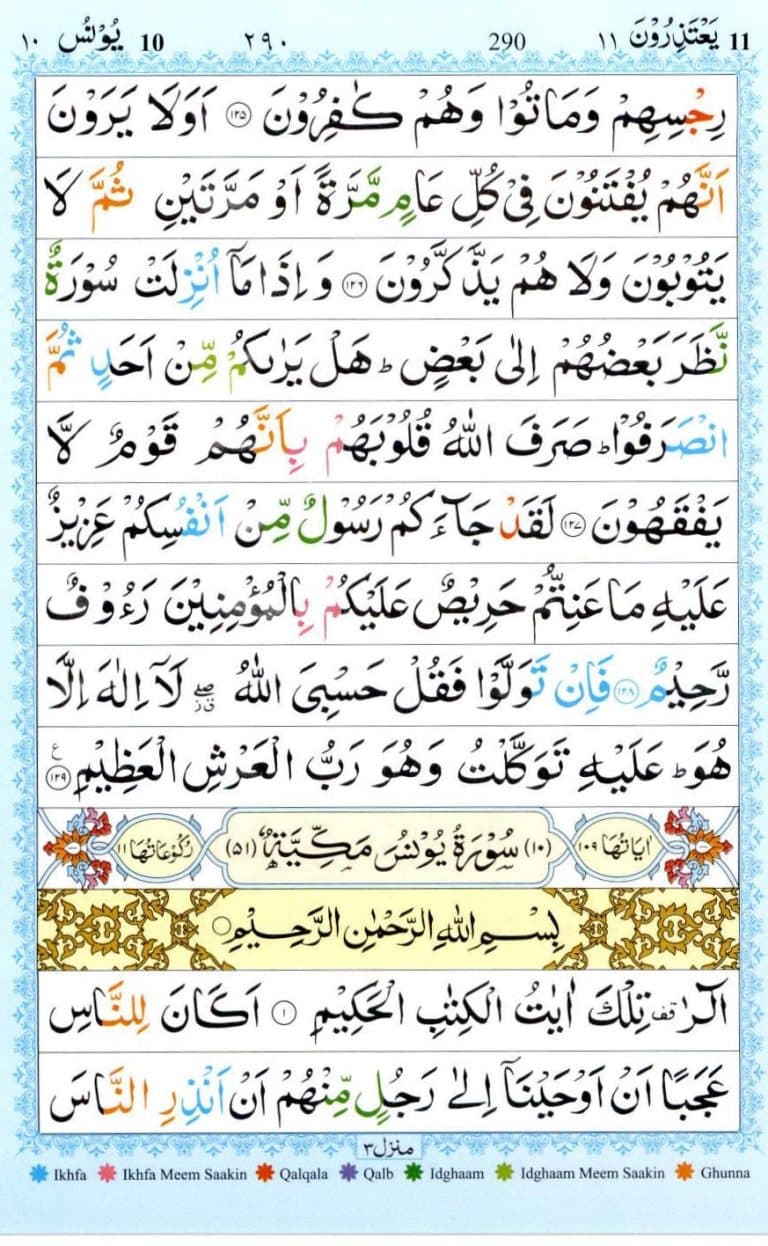 ١٠ يُوْنُس 10 ٢٩٠ 290 يَعْتَذِرُوْنَ ١١ 11
رِجْسِهِمْ وَمَاتُوْا وَهُمْ كٰفِرُوْنَ ١٢٥ اَوَلَا يَرَوْنَ
اَنَّهُمْ يُفْتَنُوْنَ فِيْ كُلِّ عَامٍ مَّرَّةً اَوْ مَرَّتَيْنِ ثُمَّ لَا
يَتُوْبُوْنَ وَلَا هُمْ يَذَّكَّرُوْنَ ١٢٦ وَاِذَا مَاۤ اُنْزِلَتْ سُوْرَةٌ
نَّظَرَ بَعْضُهُمْ اِلٰى بَعْضٍ ؕ هَلْ يَرٰىكُمْ مِّنْ اَحَدٍ ثُمَّ
انْصَرَفُوْا ؕ صَرَفَ اللّٰهُ قُلُوْبَهُمْ بِاَنَّهُمْ قَوْمٌ لَّا
يَفْقَهُوْنَ ١٢٧ لَقَدْ جَآءَكُمْ رَسُوْلٌ مِّنْ اَنْفُسِكُمْ عَزِيْزٌ
عَلَيْهِ مَا عَنِتُّمْ حَرِيْصٌ عَلَيْكُمْ بِالْمُؤْمِنِيْنَ رَءُوْفٌ
رَّحِيْمٌ ١٢٨ فَاِنْ تَوَلَّوْا فَقُلْ حَسْبِيَ اللّٰهُ ۖ لَاۤ اِلٰهَ اِلَّا
هُوَ ؕ عَلَيْهِ تَوَكَّلْتُ وَهُوَ رَبُّ الْعَرْشِ الْعَظِيْمِ ١٢٩ ع
اٰيَاتُهَا ١٠٩ (١٠) سُوْرَةُ يُوْنُسَ مَكِّيَّةٌ (٥١) رُكُوْعَاتُهَا ١١
بِسْمِ اللّٰهِ الرَّحْمٰنِ الرَّحِيْمِ
الٓرٰ ۟ قف تِلْكَ اٰيٰتُ الْكِتٰبِ الْحَكِيْمِ ١ اَكَانَ لِلنَّاسِ
عَجَبًا اَنْ اَوْحَيْنَاۤ اِلٰى رَجُلٍ مِّنْهُمْ اَنْ اَنْذِرِ النَّاسَ
منزل ٣
Ikhfa Ikhfa Meem Saakin Qalqala Qalb Idghaam Idghaam Meem Saakin Ghunna